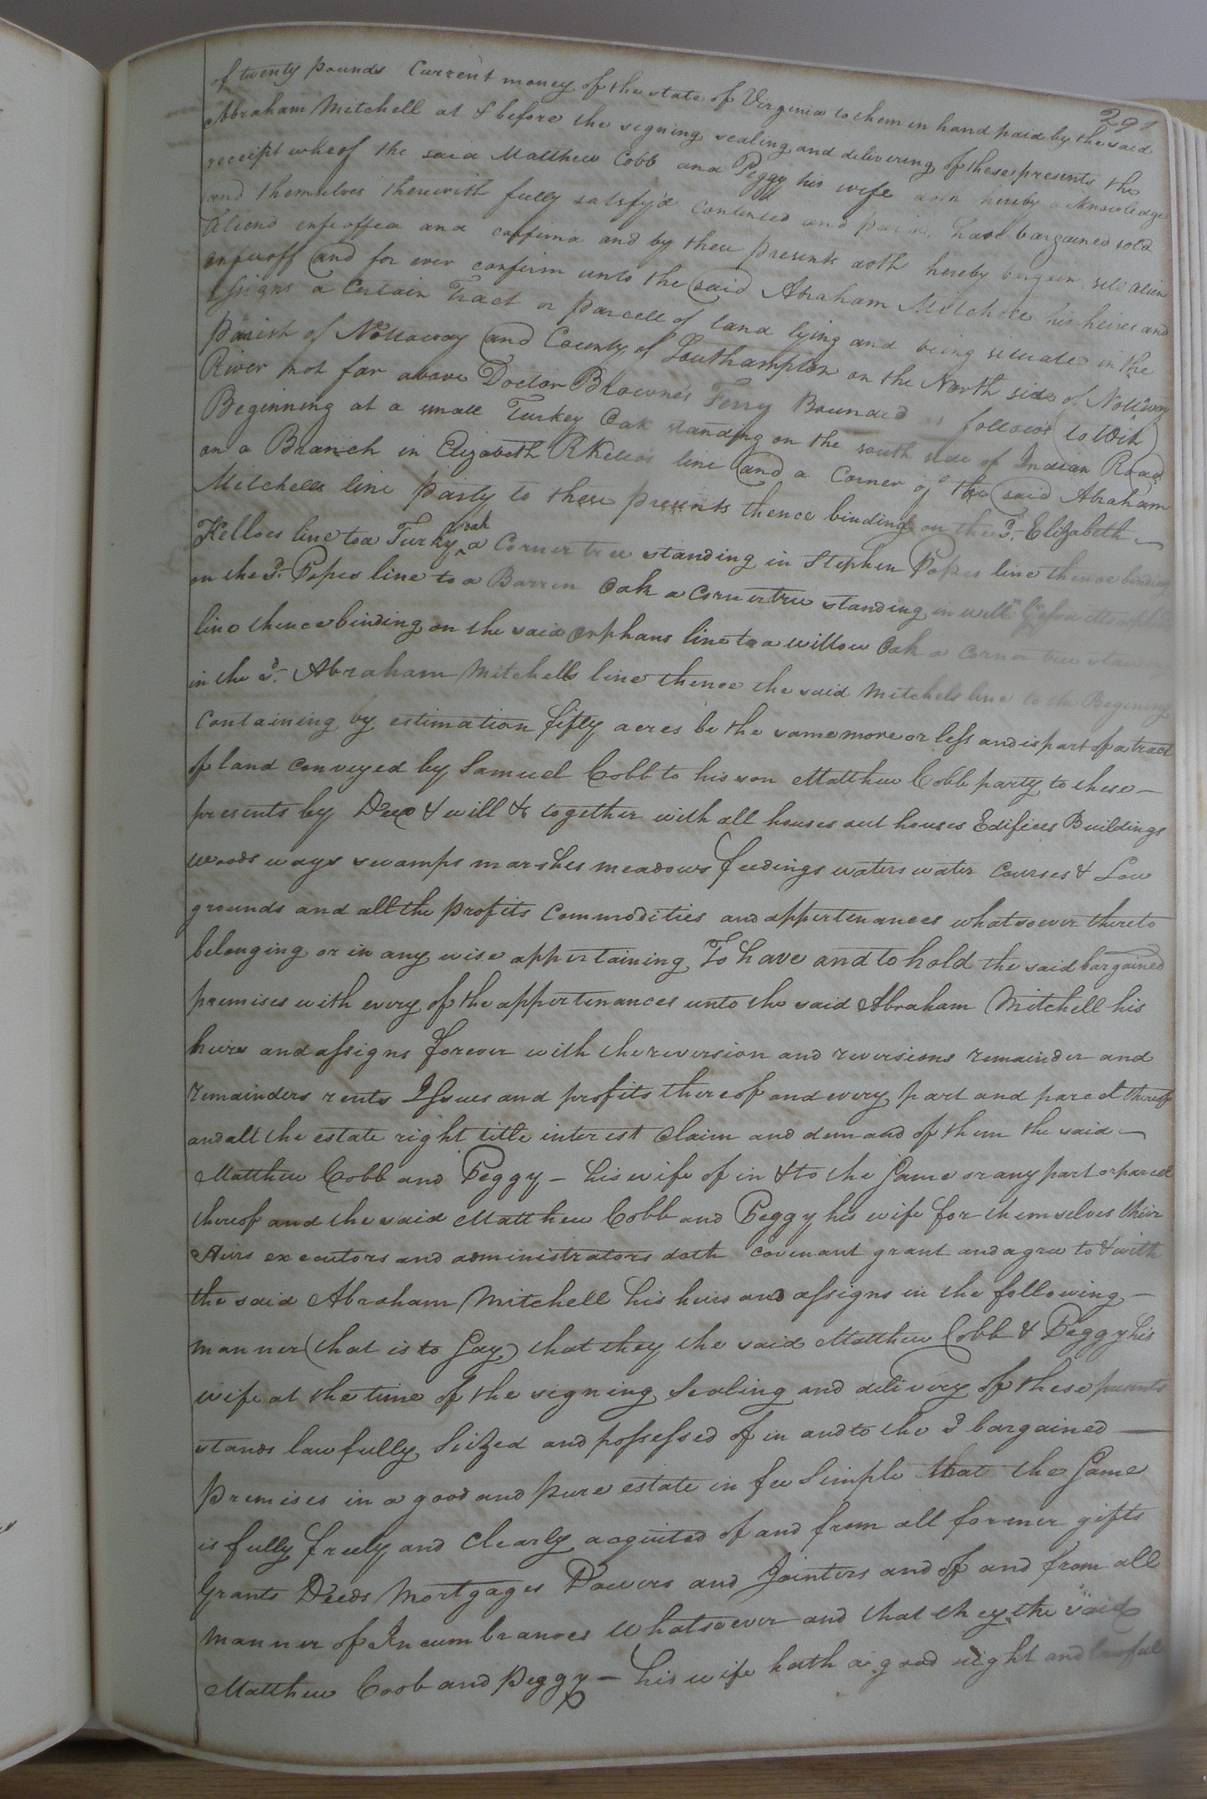 291
of twenty pounds Current money of the state of Virginia to them in hand paid by the said
Abraham Mitchell at & before the signing sealing and delivering of these presents the
receipt wheof the said Matthew Cobb and Peggy his wife doth hereby acknowledge
and themselves therewith fully satisfyd contented and paid have bargained sold
aliend infeoffed and confirmd and by these presents doth hereby bargain sell alien
infeoff and for ever confirm unto the said Abraham Mitchell his heires and
assigns a Certain Tract or parcell of land lying and being situate in the
parish of Nottoway and County of Southampton on the North side of Nottoway
River not far above Doctor Browne's Ferry Bounded as follows to Wit
Beginning at a small Turkey Oak standing on the south side of Indian Road
on a Branch in Elizabeth Kelloes line and a Corner of the said Abraham
Mitchells line party to these presents thence binding on the sd. Elizabeth
Kelloes line to a Turky oak a Corner tree standing in Stephen Popes line thence binding
on the sd. Popes line to a Barren Oak a Corner tree standing in will
line thence binding on the said orphans line to a willow Oak a Corner tree standing
in the sd. Abraham Mitchells line thence the said Mitchels line to the Begining
Containing by estimation fifty acres be the same more or less and is part of a tract
of land conveyed by Samuel Cobb to his son Matthew Cobb party to these
presents by Deed & will & together with all houses out houses Edifices Buildings
woods ways swamps marshes meadows feedings waters water Courses & Low
grounds and all the profits Commodities and appertenances whatsoever thereto
belonging or in any wise appertaining To have and to hold the said bargained
premises with every of the appertenances unto the said Abraham Mitchell his
heirs and assigns forever with the reversion and reversions remainder and
remainders rents Issues and profits thereof and every part and parcel thereof
and all the estate right title interest Claim and demand of them the said
Matthew Cobb and Peggy - his wife of in & to the Same or any part or parcel
thereof and the said Matthew Cobb and Peggy his wife for themselves their
Heirs executors and administrators doth covenant grant and agree to & with
the said Abraham Mitchell his heirs and assigns in the following
manner (that is to Say) that they the said Matthew Cobb & Peggy his
wife at the time of the signing Sealing and delivery of these presents
stands lawfully Seized and possessed of in and to the sd bargained
premises in a good and pure estate in fee Simple that the Same
is fully freely and Clearly acquited of and from all former gifts
Grants Deeds Mortgages Dowers and Jointers and of and from all
manner of Incumbrances Whatsoever and that they the said
Matthew Coob and Peggy - his wife hath a good right and lawful